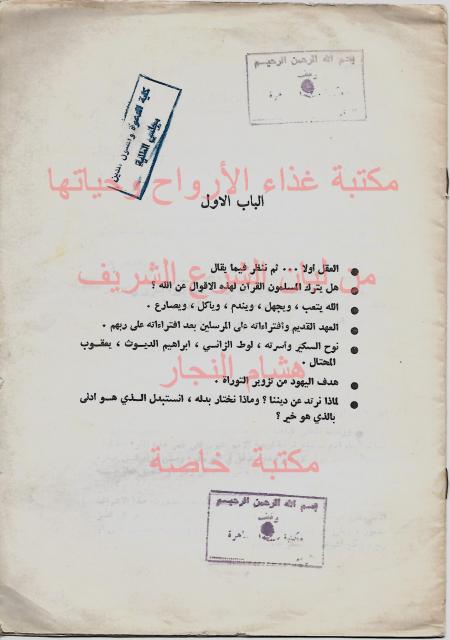 بسم الله الرحمن الرحيم
وقف
كلية الدعوة وأصول الدين
مجلس الطلبة
مكتبة غذاء الأرواح وحياتها
الباب الاول
العقل اولا ... ثم ننظر فيما يقال
من لبان الشرع الشريف
هل يترك المسلمون القرآن لهذه الاقوال عن الله ؟
الله يتعب ، ويجهل ، ويندم ، وياكل ، ويصارع .
العهد القديم وافتراءاته على المرسلين بعد افتراءاته على ربهم .
نوح السكير واسرته ، لوط الزانى ، ابراهيم الديوث ، يعقوب
المحتال .
هشام النجار
هدف اليهود من تزوير التوراة .
لماذا نرتد عن ديننا ؟ وماذا نختار بدله ، انستبدل الذي هو ادنى
بالذي هو خير ؟
مكتبة خاصة
بسم الله الرحمن الرحيم
وقف